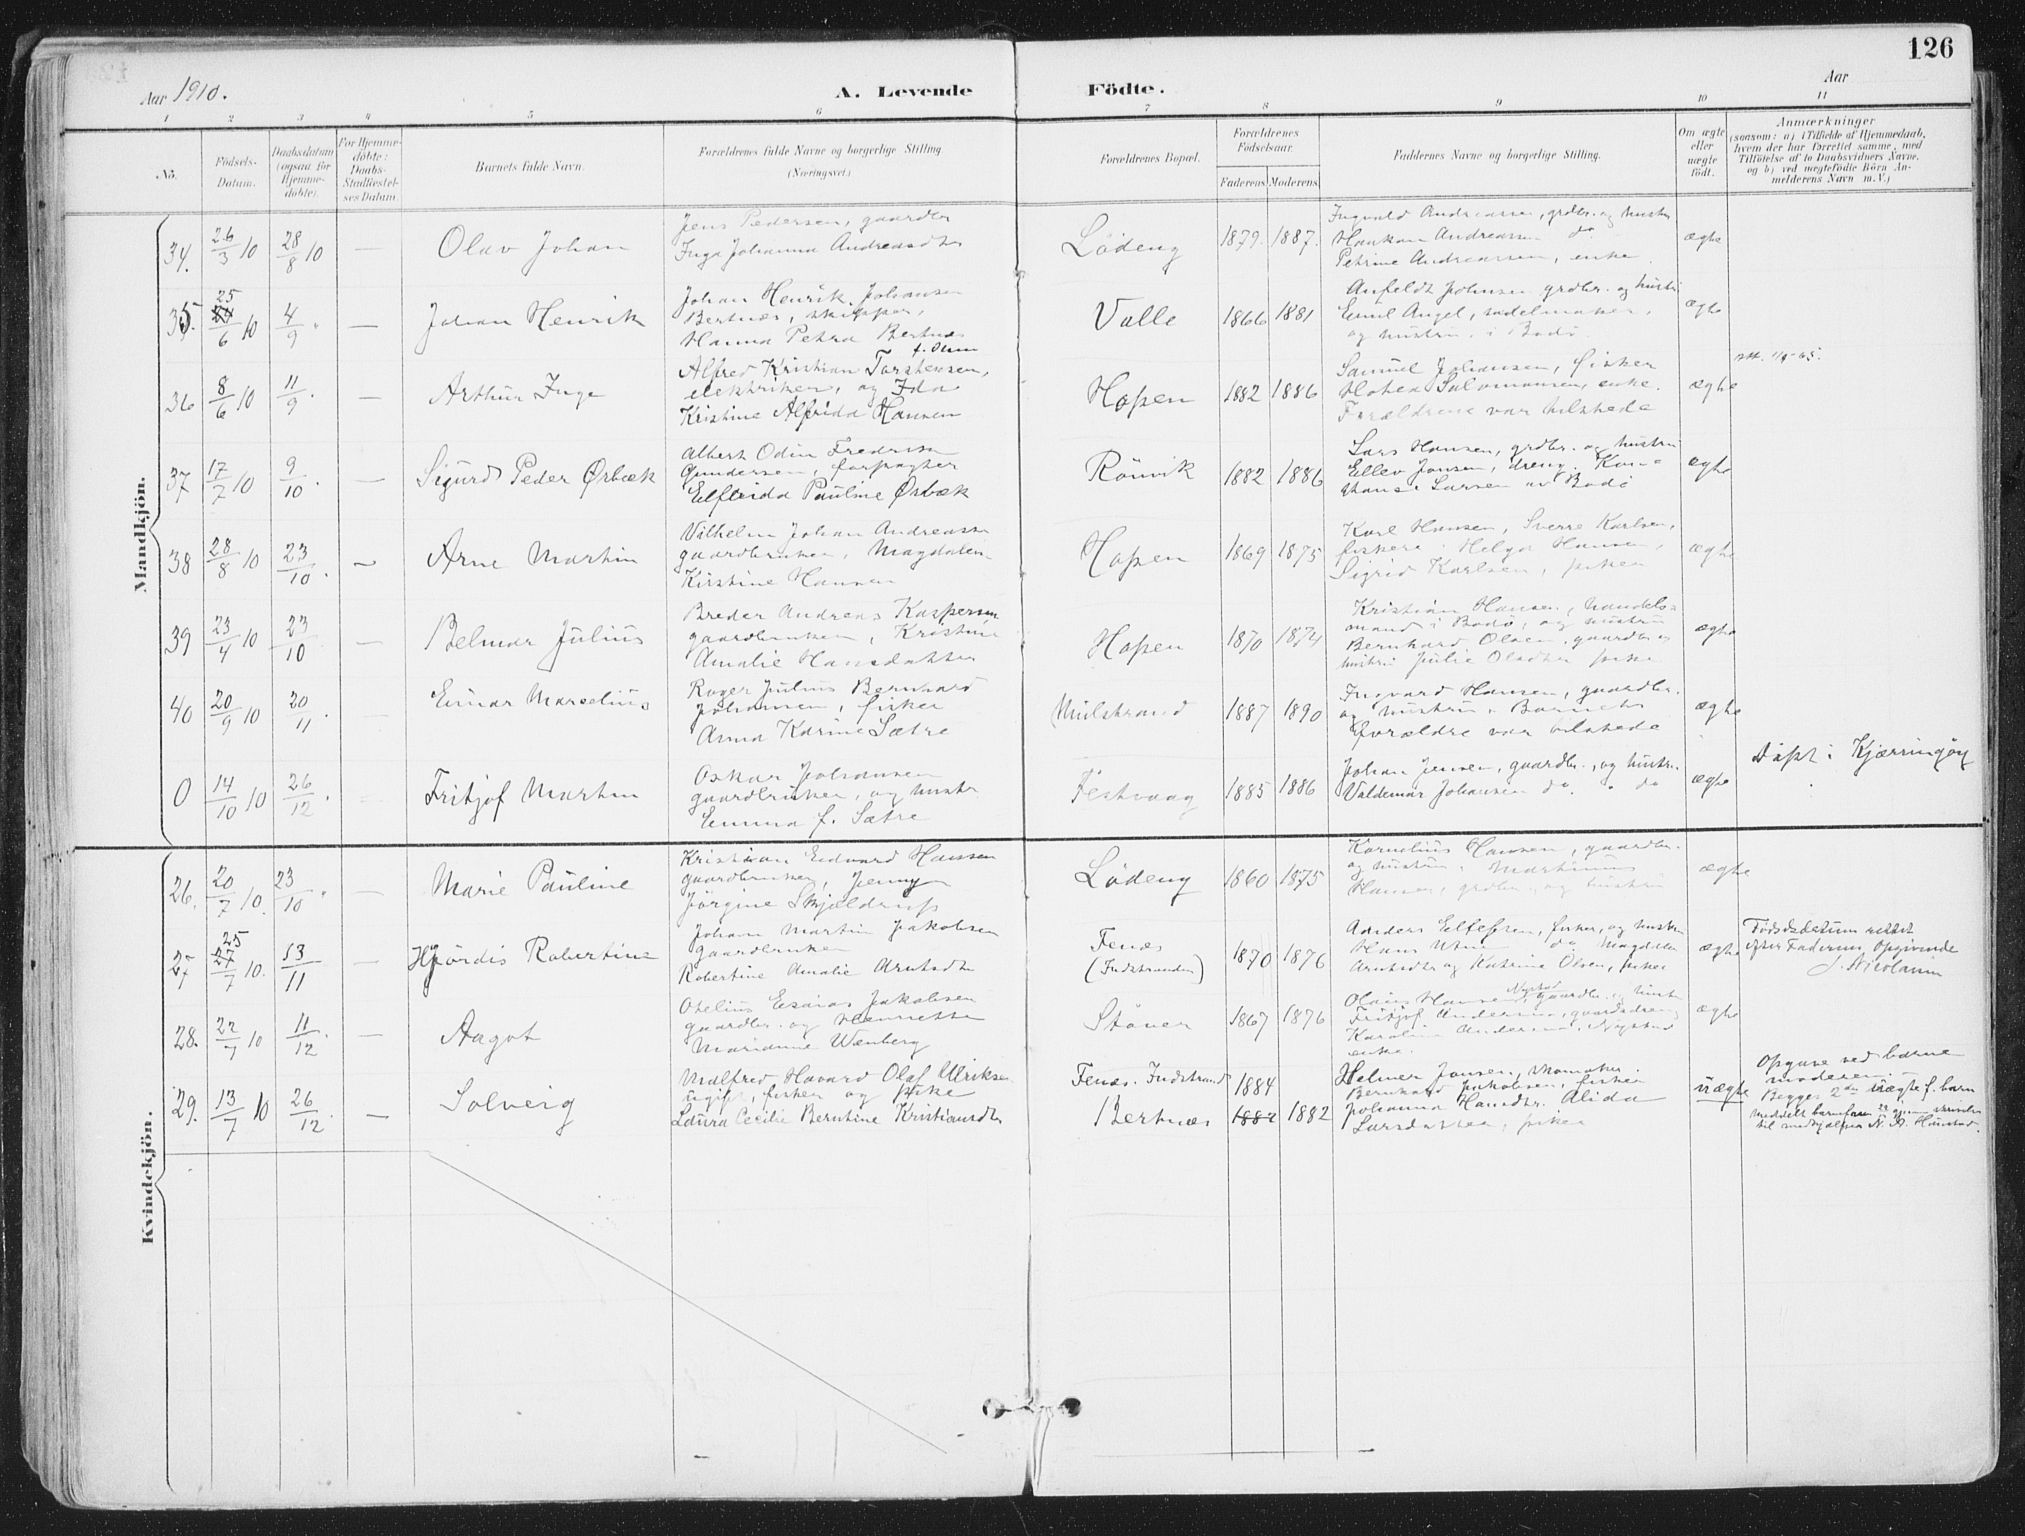 126
Aar 1910.
A. Levende Födte.
Aar
1 2 3 4 5 6 7 8 9 10 11
No.
Födsels-Datum.
Daabsdatum (ogsaa for Hjemmedöbte).
For Hjemmedöbte: Daabs-Stadfæstelses Datum.
Barnets fulde Navn.
Forældrenes fulde Navne og borgerlige Stilling.
(Næringsvei.)
Forældrenes Bopæl.
Forældrenes Födselsaar.
Faderens Moderens
Faddernes Navne og borgerlige Stilling.
Om ægte eller uægte födt.
Anmærkninger
(saasom: a) i Tilfælde af Hjemmedaab, hvem der har forrettet samme, med Tilföielse af to Daabsvidners Navne, og b) ved uægtefödte Börn Anmelderens Navn m. V.)
Mandkjön.
34. 26/3 10 28/8 10 — Olav Johan
Jens Pedersen, gaardbr
Inga Johanna Andreasdtr
Löding 1879. 1887.
Ingvald Andreassen, grdbr. og hustru
Haakon Andreassen do.
Petrine Andreassen, enke.
ægte
35. 25/6 10 4/9 — Johan Henrik
Johan Henrik Johansen
Bertnæs, skipper,
Hanna Petra Bertnæs
f. Olsen
Valle 1866 1881
Anfeldt Johnsen grdbr. og hustr.
Emil Angel, sadelmaker,
og hustru i Bodö.
ægte
36 8/6 10 11/9. — Arthur Inge
Alfred Kristian Torstensen,
elektriker, og Ida
Kristine Alfrida Hansen
Hopen 1882 1886
Samuel Johansen, fisker
Salomonsen, enke.
Forældrene var tilstede
ægte
37 17/7 10 9/10. — Sigurd Peder Ørbæk
Albert Odin Fredrik
Gundersen, forpagter
Elfleida Pauline Ørbæk
Rönvik 1882 1886
Lars Hansen, grdbr. og hustru
Ellev Jensen, dreng.
Larsen av Bodö
ægte
38 28/8 10 23/10. — Arne Martin
Vilhelm Johan Andreassen
gaardbruker, Magdalena
Kirstine Hansen
Hopen 1869 1875
Karl Hansen, Sverre Karlsen,
fiskere. Helga Hansen,
Sigrid Karlsen, piker
ægte
39 23/4 10 23/10 — Belmar Julius
Breder Andreas Kaspersen
gaardbruker, Kristine
Amalie Hansdatter
Hopen 1870 1874
Kristian Hansen, handels-
mand i Bodö, og hustru
Bernhard Olsen, gaardbr. og
hustru Julie Olsdtr pike
ægte
40 20/9 10 20/11 — Einar Marselius
Roger Julius Bernhard
Johansen, fisker
Anna Karine Sætre
Mulstrand 1887 1890
Ingvard Hansen, gaardbr.
og hustru. Barnets
Forældre var tilstede
ægte
0 14/10 10 26/12. Fritjof Martin
Oskar Johansen
gaardbruker, og hustr.
Emma f. Sætre
Festvaag 1885 1886
Johan Jensen, gaardbr., og hustru.
Valdemar Johansen do. " do
ægte
Döpt i Kjærringöy
Kvindekjön.
26. 20/7 10. 23/10. — Marie Pauline
Kristian Edvard Hansen
gaardbruker, Jenny
Jörgine Skjeldrup
Löding 1860 1875
Kornelius Hansen, gaardbr.
og hustru. Martinus
Hansen, grdbr. og hustru
ægte
27 25/7 10. 13/11 — Hjördis Robertine
Johan Martin Jakobsen
gaardbruker
Robertine Amalie Arntsdtr
Fenæs
(Indstranden) 1870 1876
Anders Ellefsen, fisker, og hustru
Hans do Magdalena
Arntsdtr og Katrine Olsen, piker
ægte
Födselsdatum rettet
efter Faderens Opgivende
J. Nicolaisen
28. 22/7 10 11/12. — Aagot
Otelius Esaias Jakobsen
gaardbr. og Henriette
Marianne Wenberg
Stöver 1867 1876
Olaus Hansen Nystad, gaardbr. og hustr
Fritjof Andersen, gaardsdreng
Karoline Andersen, Nystad
enke.
ægte
29. 13/7 10 26/12 — Solveig
Malfred Havard Olaf Ulriksen
ugift, fisker og pike
Laura Cecilie Berntine Kristiansdtr
Fenæs. Indstrand 1884
Bertnæs 1882 1882
Helmer Jensen, skomaker.
Bernhard Jakobsen, fisker
Johanna Hansdtr. Alida
Larsdatter, piker
uægte
Opgave ved barne
moderen.
Begges 2det uægte f. barn